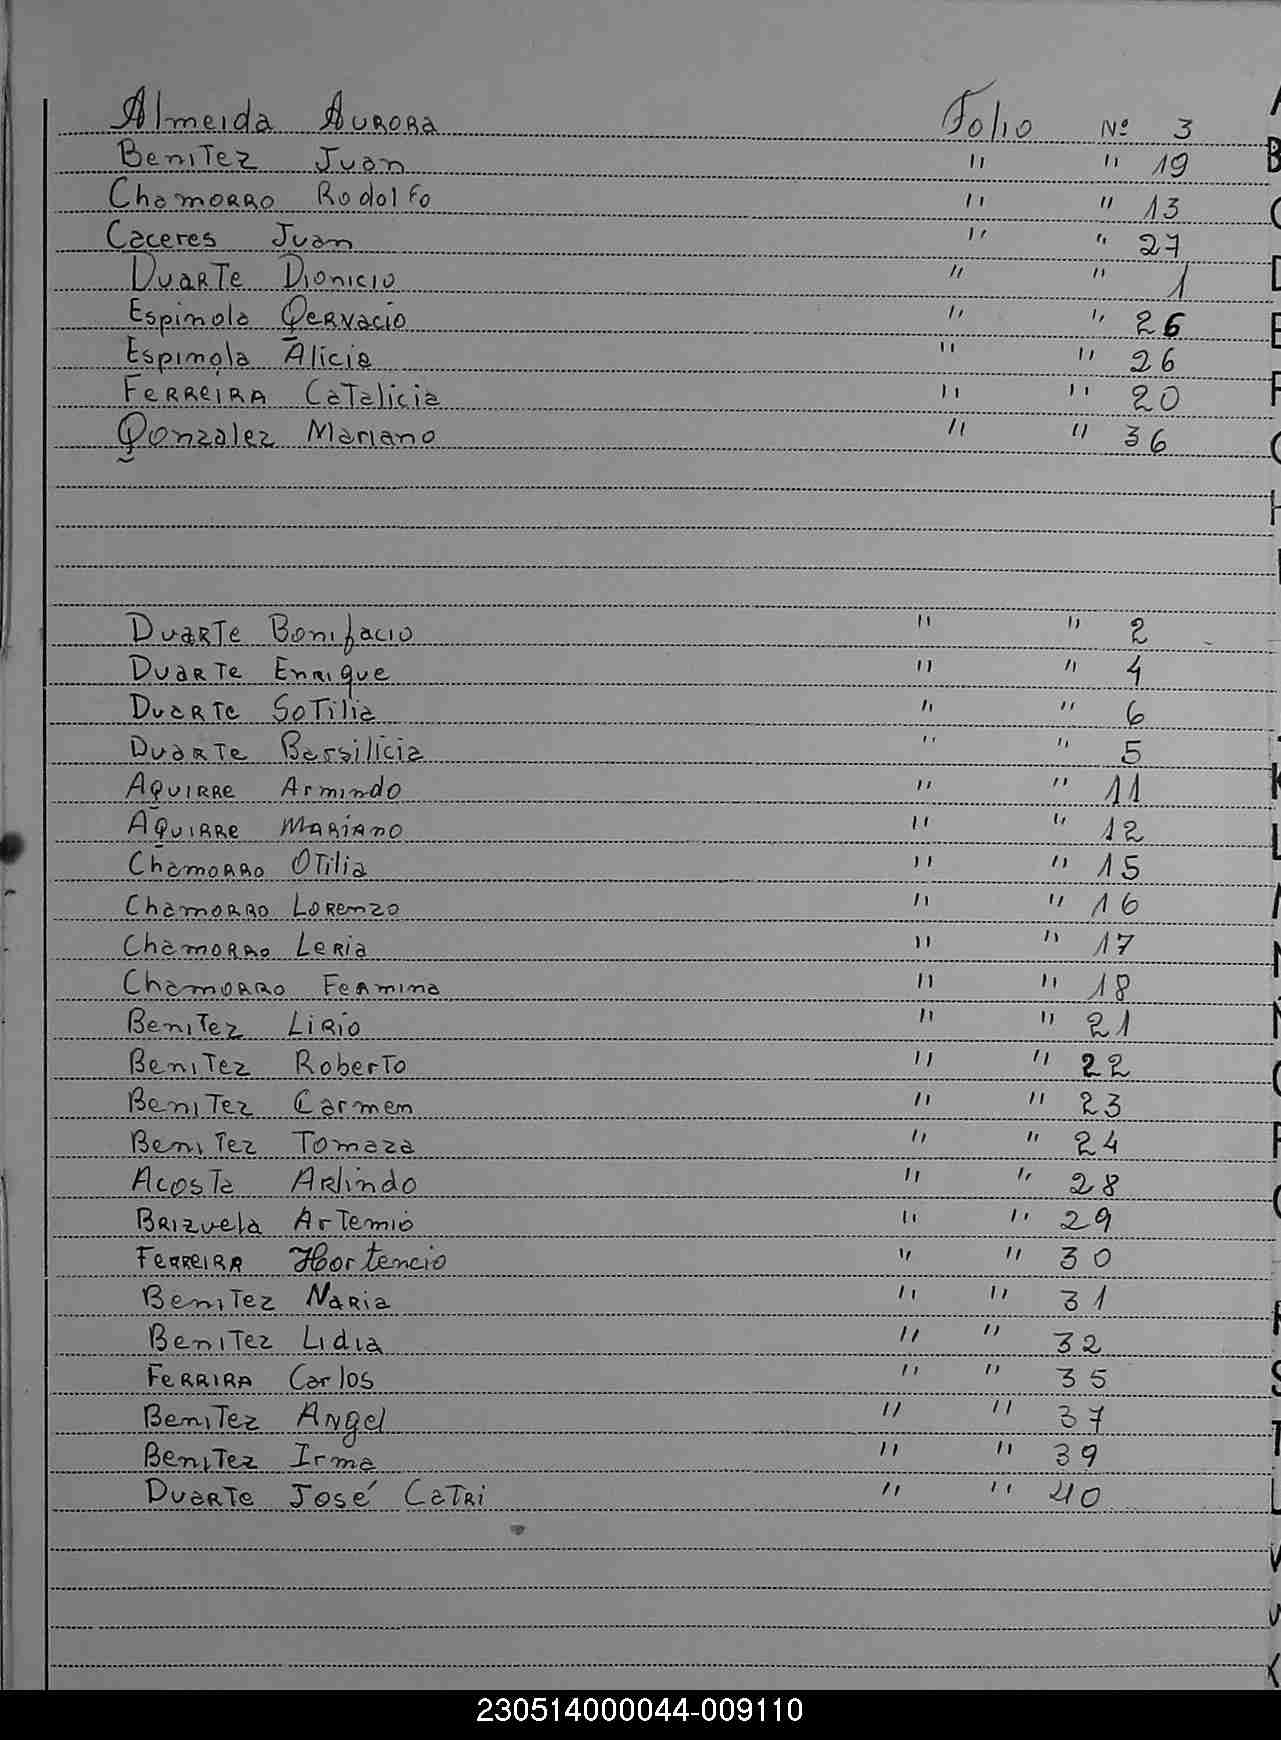 Almeida Aurora Folio Nº 3
Benitez Juan " " 19
Chamorro Rodolfo " " 13
Caceres Juan " " 27
Duarte Dionicio " " 1
Espinola Gervacio " " 26
Espinola Alicia " " 26
Ferreira Catalicia " " 20
Gonzalez Mariano " " 36
Duarte Bonifacio " " 2
Duarte Enrique " " 4
Duarte Sotilia " " 6
Duarte Bersilicia " " 5
Aguirre Armindo " " 11
Aguirre Mariano " " 12
Chamorro Otilia " " 15
Chamorro Lorenzo " " 16
Chamorro Leria " " 17
Chamorro Fermina " " 18
Benitez Lirio " " 21
Benitez Roberto " " 22
Benitez Carmen " " 23
Benitez Tomaza " " 24
Acosta Arlindo " " 28
Brizuela Artemio " " 29
Ferreira Hortencio " " 30
Benitez Naria " " 31
Benitez Lidia " " 32
Ferrira Carlos " " 35
Benitez Angel " " 37
Benitez Irma " " 39
Duarte José Catri " " 40
230514000044-009110